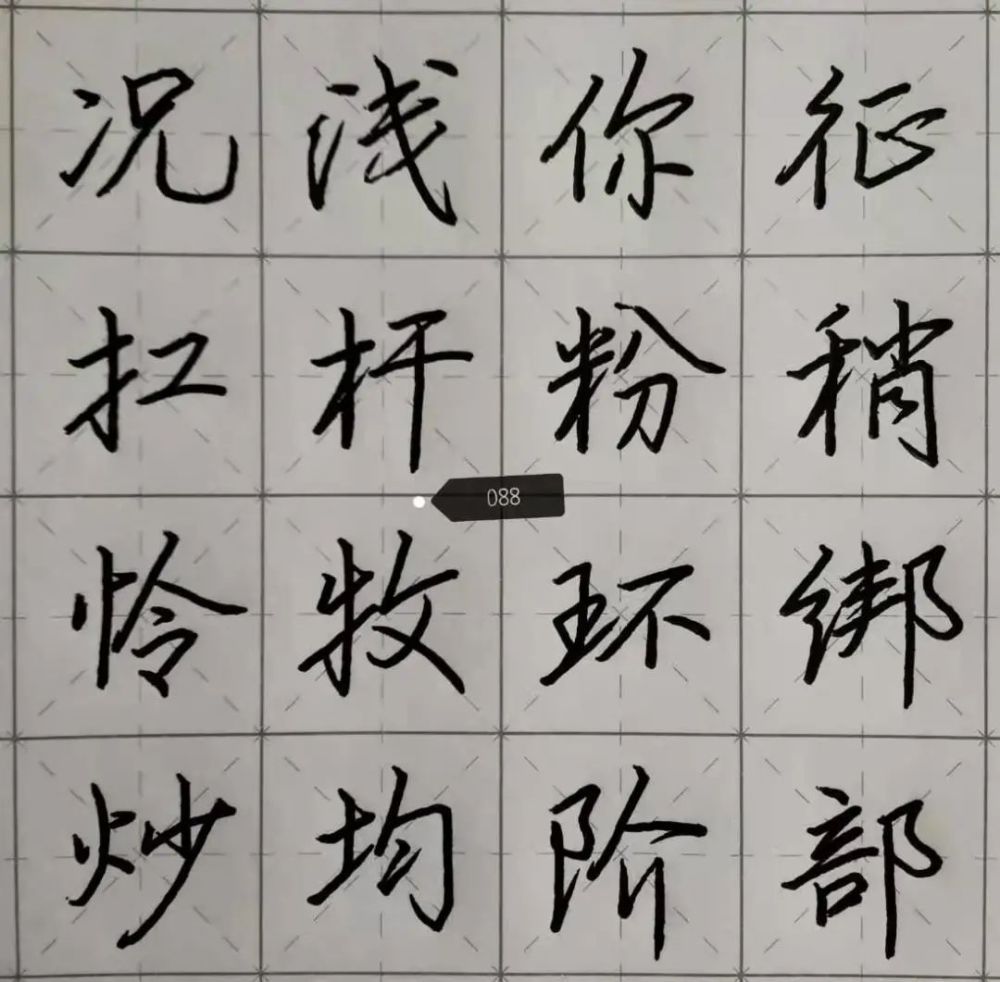 况浅你征
扛杆粉稍
088
怜牧环绑
炒均阶部